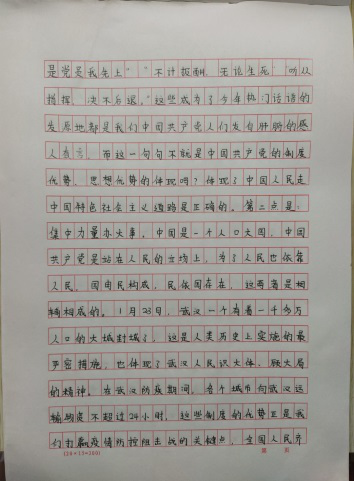 是党员我先上""不计报酬、无论生死""听从
指挥、决不后退。"这些成为了今年热门话语的
发源地都是我们中国共产党人们发自肝肺的感
人者言，而这一句句不就是中国共产党的制度
优势、思想优势的体现吗？体现了中国人民走
中国特色社会主义道路是正确的。第二点是：
集中力量办大事，中国是一个人口大国，中国
共产党是站在人民的立场上，为了人民也依靠
人民，国由民构成，民依国存在，这两者是相
辅相成的。1月23日，武汉一个有着一千多万
人口的大城封城了，这是人类历史上实施的最
严密措施，也体现了武汉人民识大体、顾大局
的精神。在武汉防疫期间，各个城市向武汉运
输物资不超过24小时，这些制度的优势正是我
们打赢疫情防控阻击战的关键点，全国人民齐
(20×15=300)
第 页